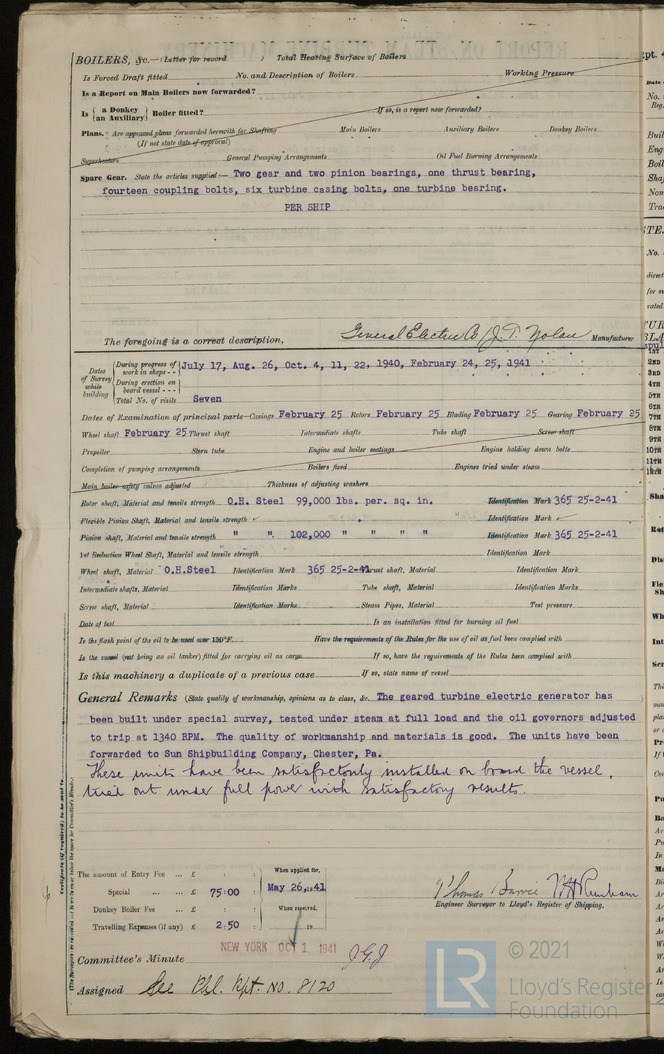 BOILERS, &c.—(Letter for record ) Total Heating Surface of Boilers
Is Forced Draft fitted No. and Description of Boilers Working Pressure
Is a Report on Main Boilers now forwarded?
Is { a Donkey an Auxiliary } Boiler fitted? If so, is a report now forwarded?
Plans. Are approved plans forwarded herewith for Shafting Main Boilers Auxiliary Boilers Donkey Boilers
(If not state date of approval)
Superheaters General Pumping Arrangements Oil Fuel Burning Arrangements
Spare Gear. State the articles supplied:— Two gear and two pinion bearings, one thrust bearing,
fourteen coupling bolts, six turbine casing bolts, one turbine bearing.
PER SHIP
The foregoing is a correct description, General Electric Co J. T. Nolan Manufacturer
Dates of Survey while building
During progress of work in shops - - July 17, Aug. 26, Oct. 4, 11, 22, 1940, February 24, 25, 1941
During erection on board vessel - - -
Total No. of visits Seven
Dates of Examination of principal parts—Casings February 25 Rotors February 25 Blading February 25 Gearing February 25
Wheel shaft February 25 Thrust shaft Intermediate shafts Tube shaft Screw shaft
Propeller Stern tube Engine and boiler seatings Engine holding down bolts
Completion of pumping arrangements Boilers fixed Engines tried under steam
Main boiler safety valves adjusted Thickness of adjusting washers
Rotor shaft, Material and tensile strength O.H. Steel 99,000 lbs. per. sq. in. Identification Mark 365 25-2-41
Flexible Pinion Shaft, Material and tensile strength Identification Mark
Pinion shaft, Material and tensile strength " " 102,000 " " " " Identification Mark 365 25-2-41
1st Reduction Wheel Shaft, Material and tensile strength Identification Mark
Wheel shaft, Material O.H.Steel Identification Mark 365 25-2-41 Thrust shaft, Material Identification Mark
Intermediate shafts, Material Identification Marks Tube shaft, Material Identification Marks
Screw shaft, Material Identification Marks Steam Pipes, Material Test pressure
Date of test Is an installation fitted for burning oil fuel
Is the flash point of the oil to be used over 150°F. Have the requirements of the Rules for the use of oil as fuel been complied with
Is the vessel (not being an oil tanker) fitted for carrying oil as cargo If so, have the requirements of the Rules been complied with
Is this machinery a duplicate of a previous case If so, state name of vessel
General Remarks (State quality of workmanship, opinions as to class, &c. The geared turbine electric generator has
been built under special survey, tested under steam at full load and the oil governors adjusted
to trip at 1340 RPM. The quality of workmanship and materials is good. The units have been
forwarded to Sun Shipbuilding Company, Chester, Pa.
These units have been satisfactorily installed on board the vessel,
tried out under full power with satisfactory results.
The amount of Entry Fee ... £ : : When applied for,
Special ... ... £ 75:00 : May 26, 1941
Donkey Boiler Fee ... £ : : When received,
Travelling Expenses (if any) £ 2:50 : 19
Thomas
Engineer Surveyor to Lloyd's Register of Shipping.
NEW YORK OCT 1 1941
Committee's Minute J.G.J
Assigned See Phl. Rpt. No. 8120
© 2021
LR Lloyd's Register
Foundation